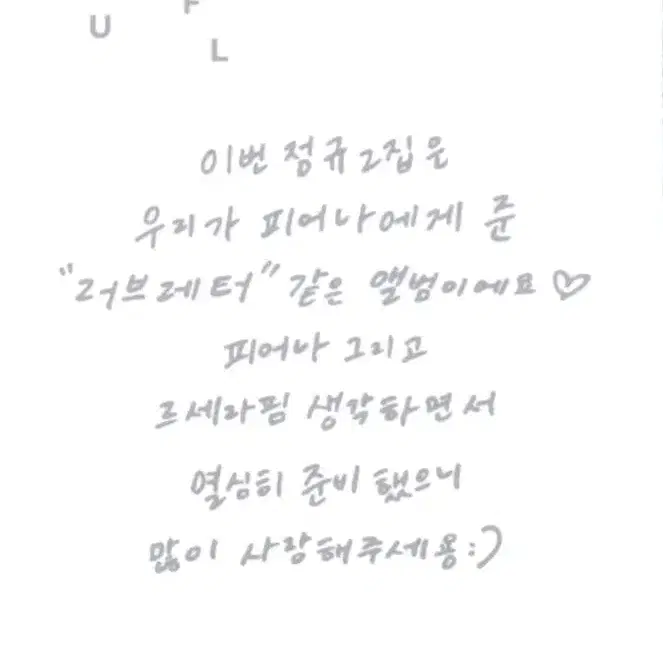 F
U
L
이번 정규2집은
우리가 피어나에게 준
"러브레터" 같은 앨범이에요♡
피어나 그리고
르세라핌 생각하면서
열심히 준비 했으니
많이 사랑해주세용:)